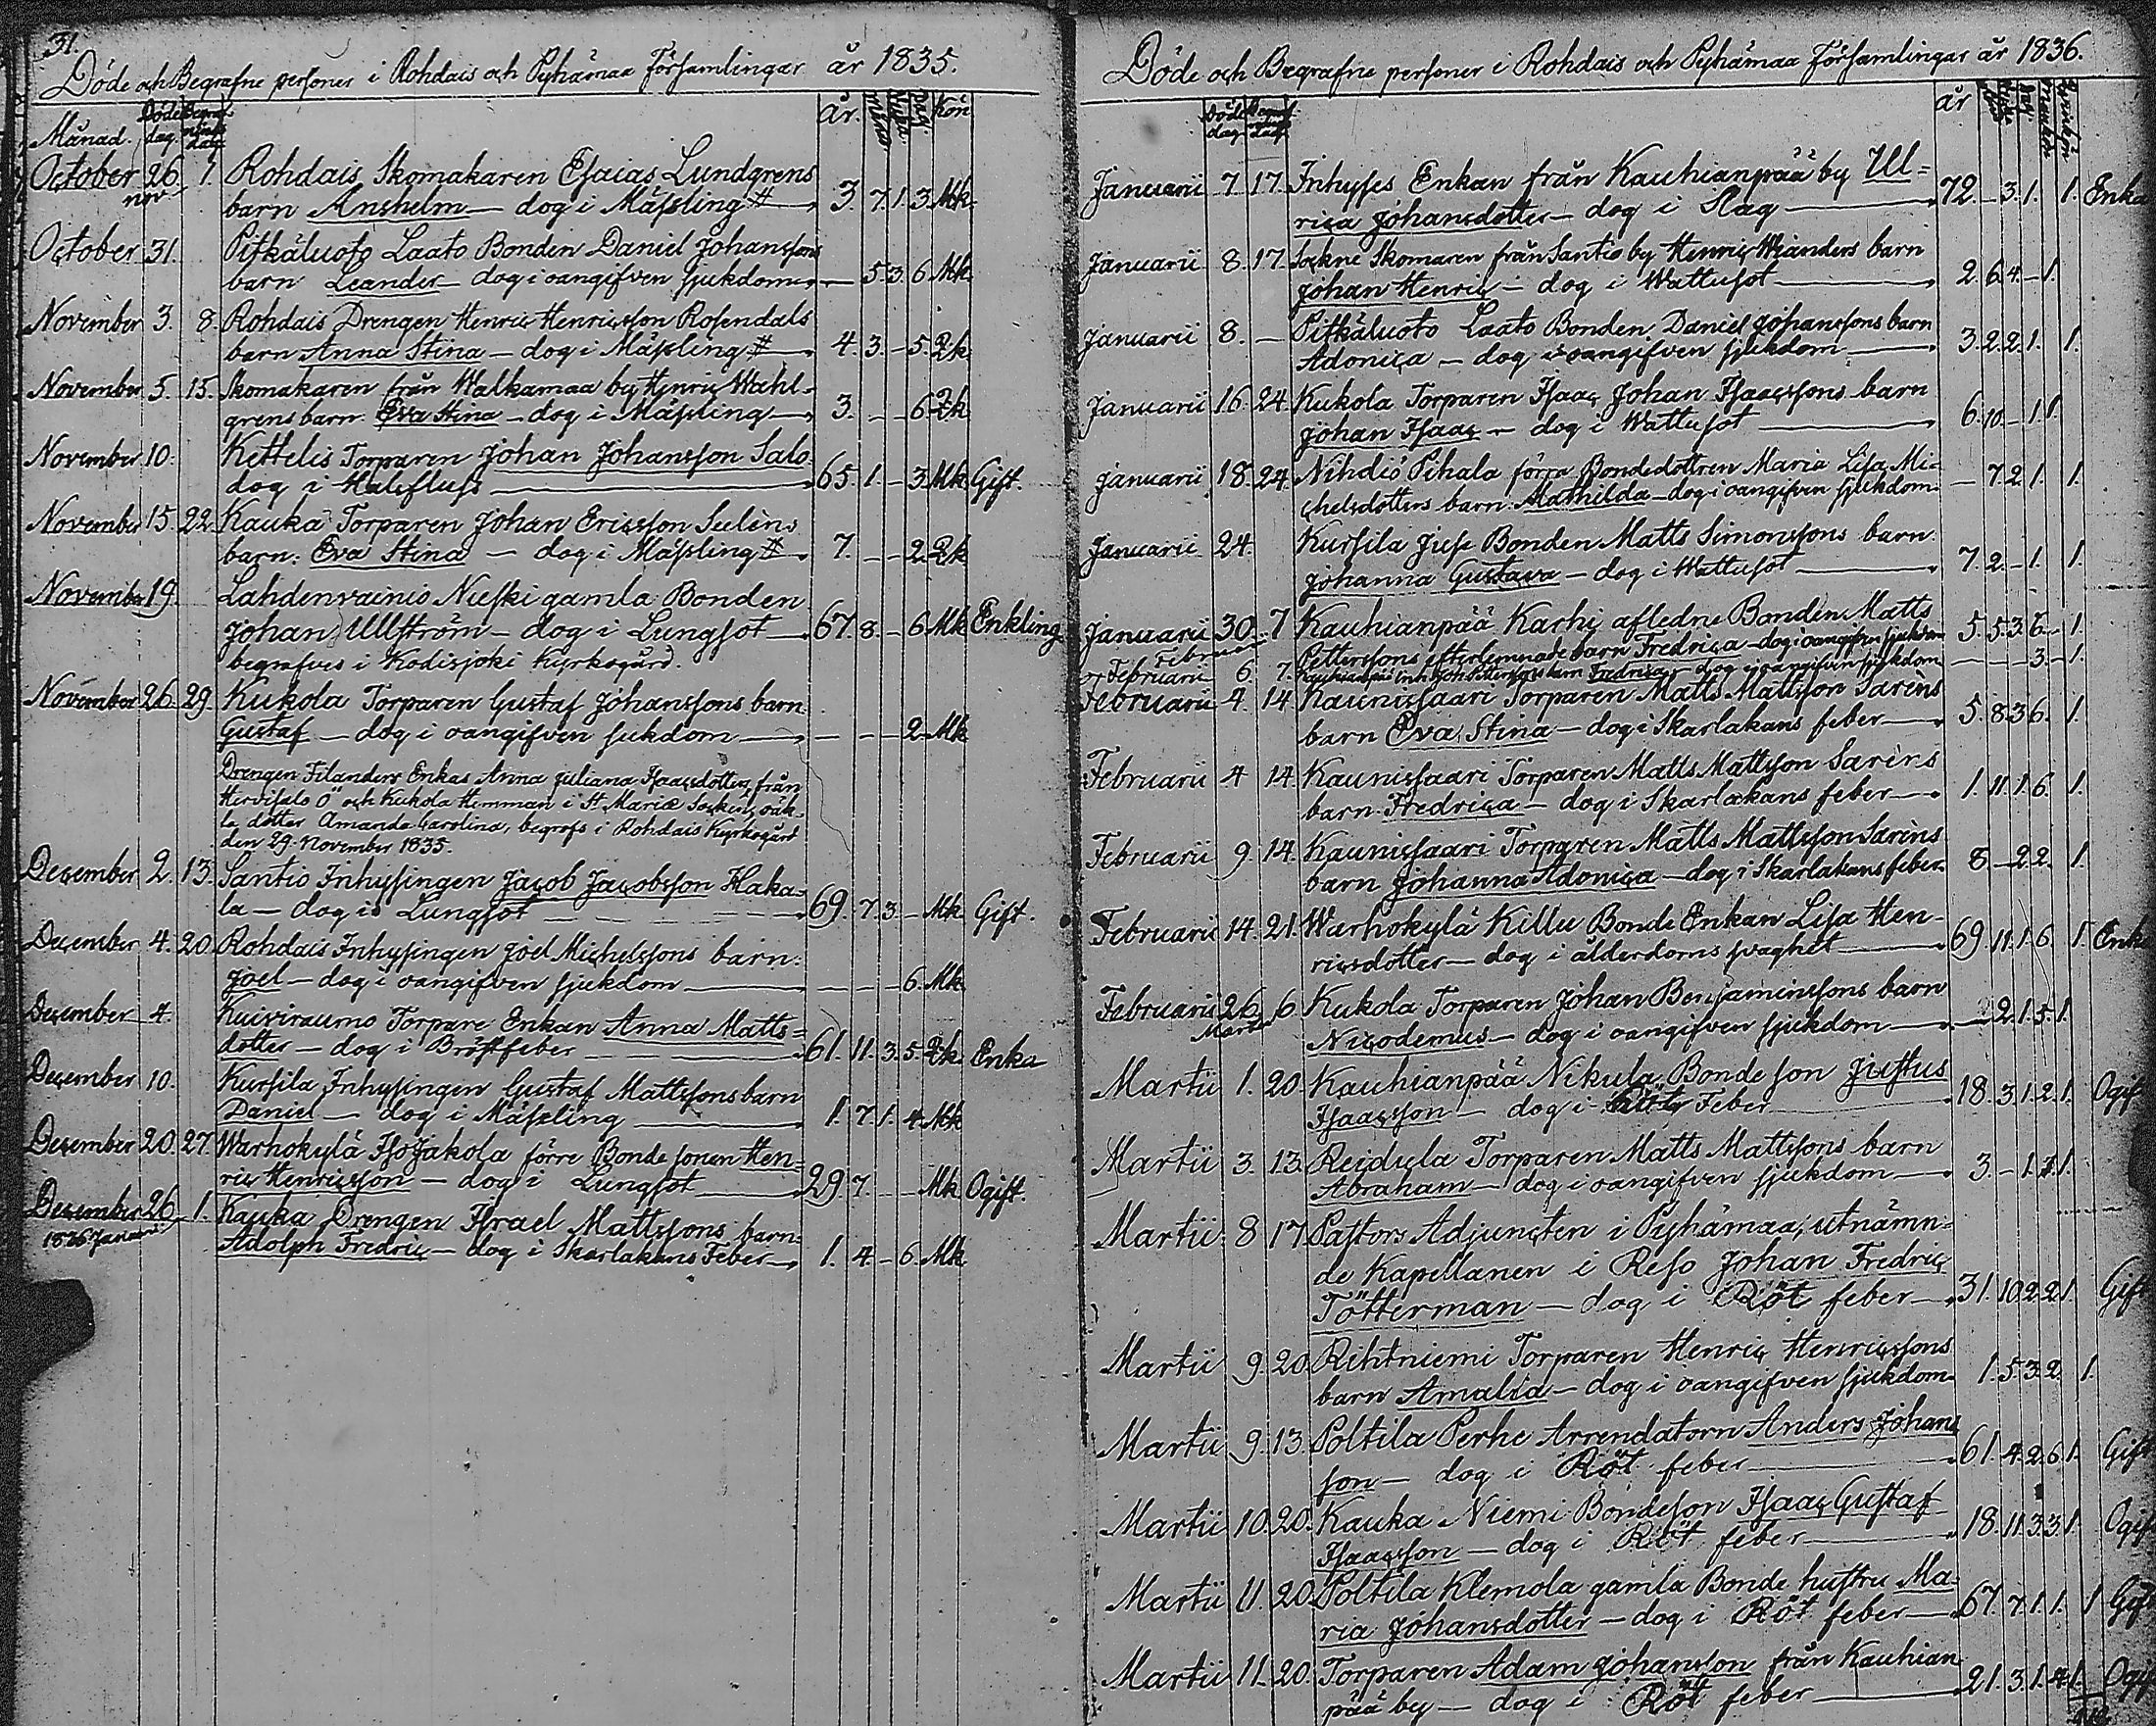 31.
Döde och Begrafne personer i Rohdais och Pyhämaa Församlingar år 1835.
Månad. Döde dag. Begrafnings dag. år. Månad Dag. Kön
October 26 1. Rohdais Skomakaren Esaias Lundgrens
nov barn Anshelm — dog i Mässling # 3. 7. 1. 3. Mk.
October 31. Pitkäluoto Laato Bonden Daniel Johanssons
barn Leander — dog i oangifven sjukdom — 5. 3. 6. Mk.
November 3. 8. Rohdais Drengen Henric Henricsson Rosendals
barn Anna Stina — dog i Mässling # 4. 3. — 5. Qk
November 5. 15. Skomakaren från Walkamaa by Henric Wahl-
grens barn Eva Stina — dog i Mässling 3. — — 6. Qk
November 10. Kettelis Torparen Johan Johansson Salo
dog i Halsfluss 65. 1. — 3. Mk Gift.
November 15. 22. Kauka Torparen Johan Ericsson Seelèns
barn. Eva Stina — dog i Mässling # 7. — — 2. Qk
November 19. Lahdenvainio Nuski gamla Bonden
Johan Ullström — dog i Lungsot 67. 8. — 6. Mk Enkling
begrafves i Kodisjoki Kyrkogård.
November 26. 29. Kukola Torparen Gustaf Johanssons barn
Gustaf — dog i oangifven sukdom — — — 2. Mk
Drengen Filanders Enkas Anna Juliana Isaacsdotter, från
Hervisalo Ö och Kukola Hemman i St Mariæ Socken, oäk-
ta dotter Amanda Carolina, begrofs i Rohdais Kyrkogård
den 29. November 1835.
December 2. 13. Santio Inhysingen Jacob Jacobsson Haka-
la — dog i Lungsot 69. 7. 3. — Mk Gift.
December 4. 20. Rohdais Inhysingen Joel Michelssons barn:
Joel — dog i oangifven sjukdom — — — 6. Mk
December 4. Kuiviraumo Torpare Enkan Anna Matts-
dotter — dog i Bröstfeber 61. 11. 3. 5. Qk Enka
December 10. Kursila Inhysingen Gustaf Mattssons barn
Daniel — dog i Mässling 1. 7. 1. 4. Mk
December 20. 27. Warhokylä Iso Jakola förre Bonde sonen Hen-
ric Henricsson — dog i Lungsot 29. 7. — — Mk Ogift.
December 26 1. Kauka Drengen Israel Mattssons barn:
1836 Januari Adolph Fredric — dog i Skarlakans Feber 1. 4. — 6. Mk
Döde och Begrafne personer i Rohdais och Pyhämaa Församlingar år 1836.
Döde dag år
Januarii 7 17. Inhyses Enkan från Kauhianpää by Ul-
rica Johansdotter — dog i Slag 72. — 3. 1. 1. Enka
Januarii 8. 17. Sockne Skomaren från Santio by Henric Wianders barn
Johan Henric — dog i Wattusot 2. 6. 4. — 1.
Januarii 8. — Pitkäluoto Laato Bonden Daniel Johanssons barn
Adonica — dog i oangifven sjukdom 3. 2. 2. 1. 1.
Januarii 16. 24. Kukola Torparen Isaac Johan Isaacssons barn
Johan Isaac — dog i Wattusot 6. 10. — 1. 1.
Januarii 18. 24. Nihdiö Pihala förra Bondedottren Maria Lisa Mi-
chelsdotters barn Mathilda — dog i oangifven sjukdom — 7. 2. 1. 1.
Januarii 24. Kursila Juse Bonden Matts Simonssons barn
Johanna Gustava — dog i Wattusot 7. 2. — 1. 1.
Januarii 30. 7 Kauhianpää Karhi afledne Bonden Matts
Februari Petterssons efterlemnade barn Fredrica — dog i oangifven sjukdom 5. 5. 3. 6. — 1.
Februarii 6. 7. barn Fredrica — dog i oangifven sjukdom — — — 3. — 1.
Februarii 4. 14 Kaunissaari Torparen Matts Mattsson Sarèns
barn Eva Stina — dog i Skarlakans feber 5. 8. 3. 6. 1.
Februarii 4 14. Kaunissaari Torparen Matts Mattsson Sarèns
barn Fredrica — dog i Skarlakans feber 1. 11. 1. 6. 1.
Februarii 9. 14. Kaunissaari Torparen Matts Mattsson Sarèns
barn Johanna Adonica — dog i Skarlakans feber 8 — 2. 2. 1.
Februarii 14. 21. Warhokylä Killu Bonde Enkan Lisa Hen-
ricsdotter — dog i ålderdoms svaghet 69 11. 1. 6. 1. Enka
Februarii 26. 6. Kukola Torparen Johan Benjaminssons barn
Martii Nicodemus — dog i oangifven sjukdom — 2. 1. 5. 1.
Martii 1. 20. Kauhianpää Nikula Bonde son Justus
Isaacsson — dog i Feber 18. 3. 1. 2. 1. Ogift
Martii 3. 13. Reidula Torparen Matts Mattssons barn
Abraham — dog i oangifven sjukdom 3. — 1. 1. 1.
Martii 8 17 Pastors Adjuncten i Pyhämaa, utnämn-
de Kapellanen i Reso Johan Fredric
Tötterman — dog i Röt feber 31. 10. 2. 2. 1. Gift
Martii 9. 20. Rihtniemi Torparen Henric Henricssons
barn Amalia — dog i oangifven sjukdom 1. 5. 3. 2. 1.
Martii 9. 13. Poltila Perhe Arrendatorn Anders Johans
son — dog i Röt feber 61. 4. 2. 6. 1. Gift
Martii 10. 20. Kauka Niemi Bondeson Isaac Gustaf
Isaacsson — dog i Röt feber 18. 11. 3. 3. 1. Ogift
Martii 11. 20. Poltila Klemola gamla Bonde hustru Ma-
ria Johansdotter — dog i Röt feber 67. 7. 1. 1. 1 Gift
Martii 11. 20. Torparen Adam Johansson från Kauhian
pää by — dog i Röt feber 21. 3. 1. 4. 1. Ogi